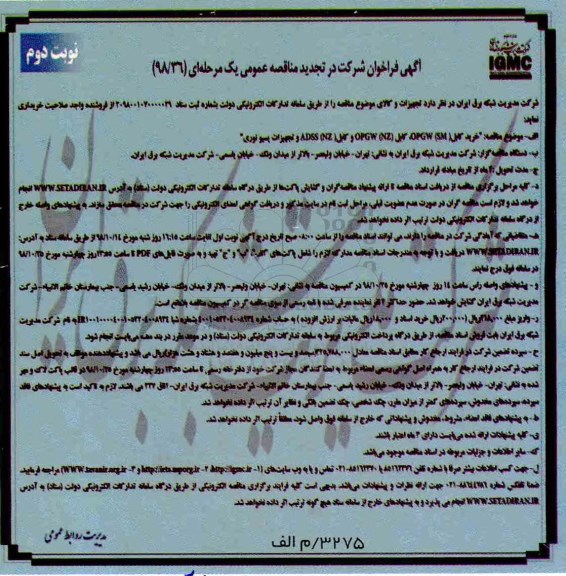 نوبت دوم
IGMC
آگهی فراخوان شرکت در تجدید مناقصه عمومی یک مرحله‌ای (۹۸/۳۶)
شرکت مدیریت شبکه برق ایران در نظر دارد تجهیزات و کالای موضوع مناقصه را از طریق سامانه تدارکات الکترونیکی دولت بشماره ثبت ستاد از فروشنده واجد صلاحیت خریداری
نماید:
الف- موضوع مناقصه: "خرید کابل OPGW (SM)، کابل OPGW (NZ) و کابل ADSS (NZ) و تجهیزات پسیو نوری"
ب- دستگاه مناقصه گزار: شرکت مدیریت شبکه برق ایران به نشانی: تهران- خیابان ولیعصر- بالاتر از میدان ونک- خیابان یاسمی- شرکت مدیریت شبکه برق ایران.
ج- مدت تحویل: ماه از تاریخ مبادله قرارداد.
د- کلیه مراحل برگزاری مناقصه از دریافت اسناد مناقصه تا ارائه پیشنهاد مناقصه‌گران و گشایش پاکت‌ها از طریق درگاه سامانه تدارکات الکترونیکی دولت (ستاد) به آدرس WWW.SETADIRAN.IR انجام
خواهد شد و لازم است مناقصه گران در صورت عدم عضویت قبلی، مراحل ثبت نام در سایت مذکور و دریافت گواهی امضای الکترونیکی را جهت شرکت در مناقصه محقق سازند. به پیشنهادهای واصله خارج
از درگاه سامانه تدارکات الکترونیکی دولت ترتیب اثر داده نخواهد شد.
ه- متقاضیانی که آمادگی شرکت در مناقصه را دارند، می توانند اسناد مناقصه را از ساعت ۰۸:۰۰ صبح تاریخ درج آگهی نوبت اول لغایت ساعت ۱۶:۱۵ روز شنبه مورخ ۹۸/۱۰/۱۴ از طریق سامانه ستاد به آدرس:
WWW.SETADIRAN.IR دریافت و با توجه به مندرجات اسناد مناقصه مدارک لازم را شامل پاکت‌های "الف"، "ب" و "ج" تهیه و به صورت فایل‌های PDF تا ساعت روز چهارشنبه مورخ ۹۸/۱۰/۲۵
در سامانه فوق درج نمایند.
و- پیشنهادهای واصله راس ساعت ۱۴ روز چهارشنبه مورخ ۹۸/۱۰/۲۵ در کمیسیون مناقصه به نشانی: تهران- خیابان ولیعصر- بالاتر از میدان ونک- خیابان رشید یاسمی- جنب بیمارستان خاتم الانبیاء- شرکت مدیریت
شبکه برق ایران گشایش خواهد شد. حضور حداکثر نماینده معرفی شده و نامه رسمی از سوی مناقصه گر در کمیسیون مناقصه بلامانع است.
ز- واریز مبلغ ریال خرید اسناد و ریال مالیات بر ارزش افزوده) به حساب شماره به نام شرکت مدیریت
شبکه برق ایران بابت فروش اسناد مناقصه از طریق درگاه پرداخت الکترونیکی مربوط به سامانه تدارکات الکترونیکی دولت (ستاد) و در موعد مقرر در بند هـ می‌بایست انجام شود.
ح- سپرده تضمین شرکت در فرایند ارجاع کار مطابق اسناد مناقصه معادل ریال می باشد و پیشنهاددهنده موظف به تحویل اصل سند
تضمین شرکت در فرایند ارجاع کار به همراه اصل گواهی رسمی امضاء مربوط به امضا کنندگان مجاز شرکت خود از دفترخانه رسمی، تا ساعت روز چهارشنبه مورخ ۹۸/۱۰/۲۵ در قالب پاکت لاک و مهر
شده به نشانی: تهران- خیابان ولیعصر- بالاتر از میدان ونک- خیابان رشید یاسمی- جنب بیمارستان خاتم الانبیاء- شرکت مدیریت شبکه برق ایران- اتاق می باشند. لازم به تاکید است به پیشنهادهای فاقد
سپرده، سپرده‌های مخدوش، سپرده‌های کمتر از میزان مقرر، چک شخصی، چک تضمین بانکی و نظایر آن ترتیب اثر داده نخواهد شد.
ط- به پیشنهادهای فاقد امضاء، مشروط، مخدوش و پیشنهاداتی که خارج از سامانه فوق واصل شود، مطلقاً ترتیب اثر داده نخواهد شد.
ی- کلیه پیشنهادات ارائه شده می‌بایست دارای ۳ ماه اعتبار باشند.
ک- سایر اطلاعات و جزئیات مربوطه در اسناد مناقصه موجود می‌باشد.
ل- جهت کسب اطلاعات بیشتر صرفاً با شماره تلفن تماس و یا به وب سایت‌های (۱- http://igmc.ir، ۲- http://iets.mporg.ir و ۳- WWW.tavanir.org.ir) مراجعه فرمایید.
ضمناً تلفکس شماره جهت ارائه نظرات و پیشنهادات می‌باشد. بدیهی است کلیه فرایند برگزاری مناقصه الکترونیکی از طریق درگاه سامانه تدارکات الکترونیکی دولت (ستاد) به آدرس
WWW.SETADIRAN.IR انجام می پذیرد و به پیشنهادهای خارج از سامانه ستاد هیچ گونه ترتیب اثر داده نخواهد شد.
مدیریت روابط عمومی
۳۲۷۵/م الف